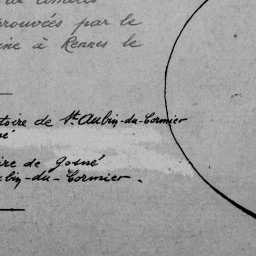 prouvées par le
à Rennes le
toire de St. Aubin-du-Cormier
é
ire de Gosné
ubin-du-Cormier.